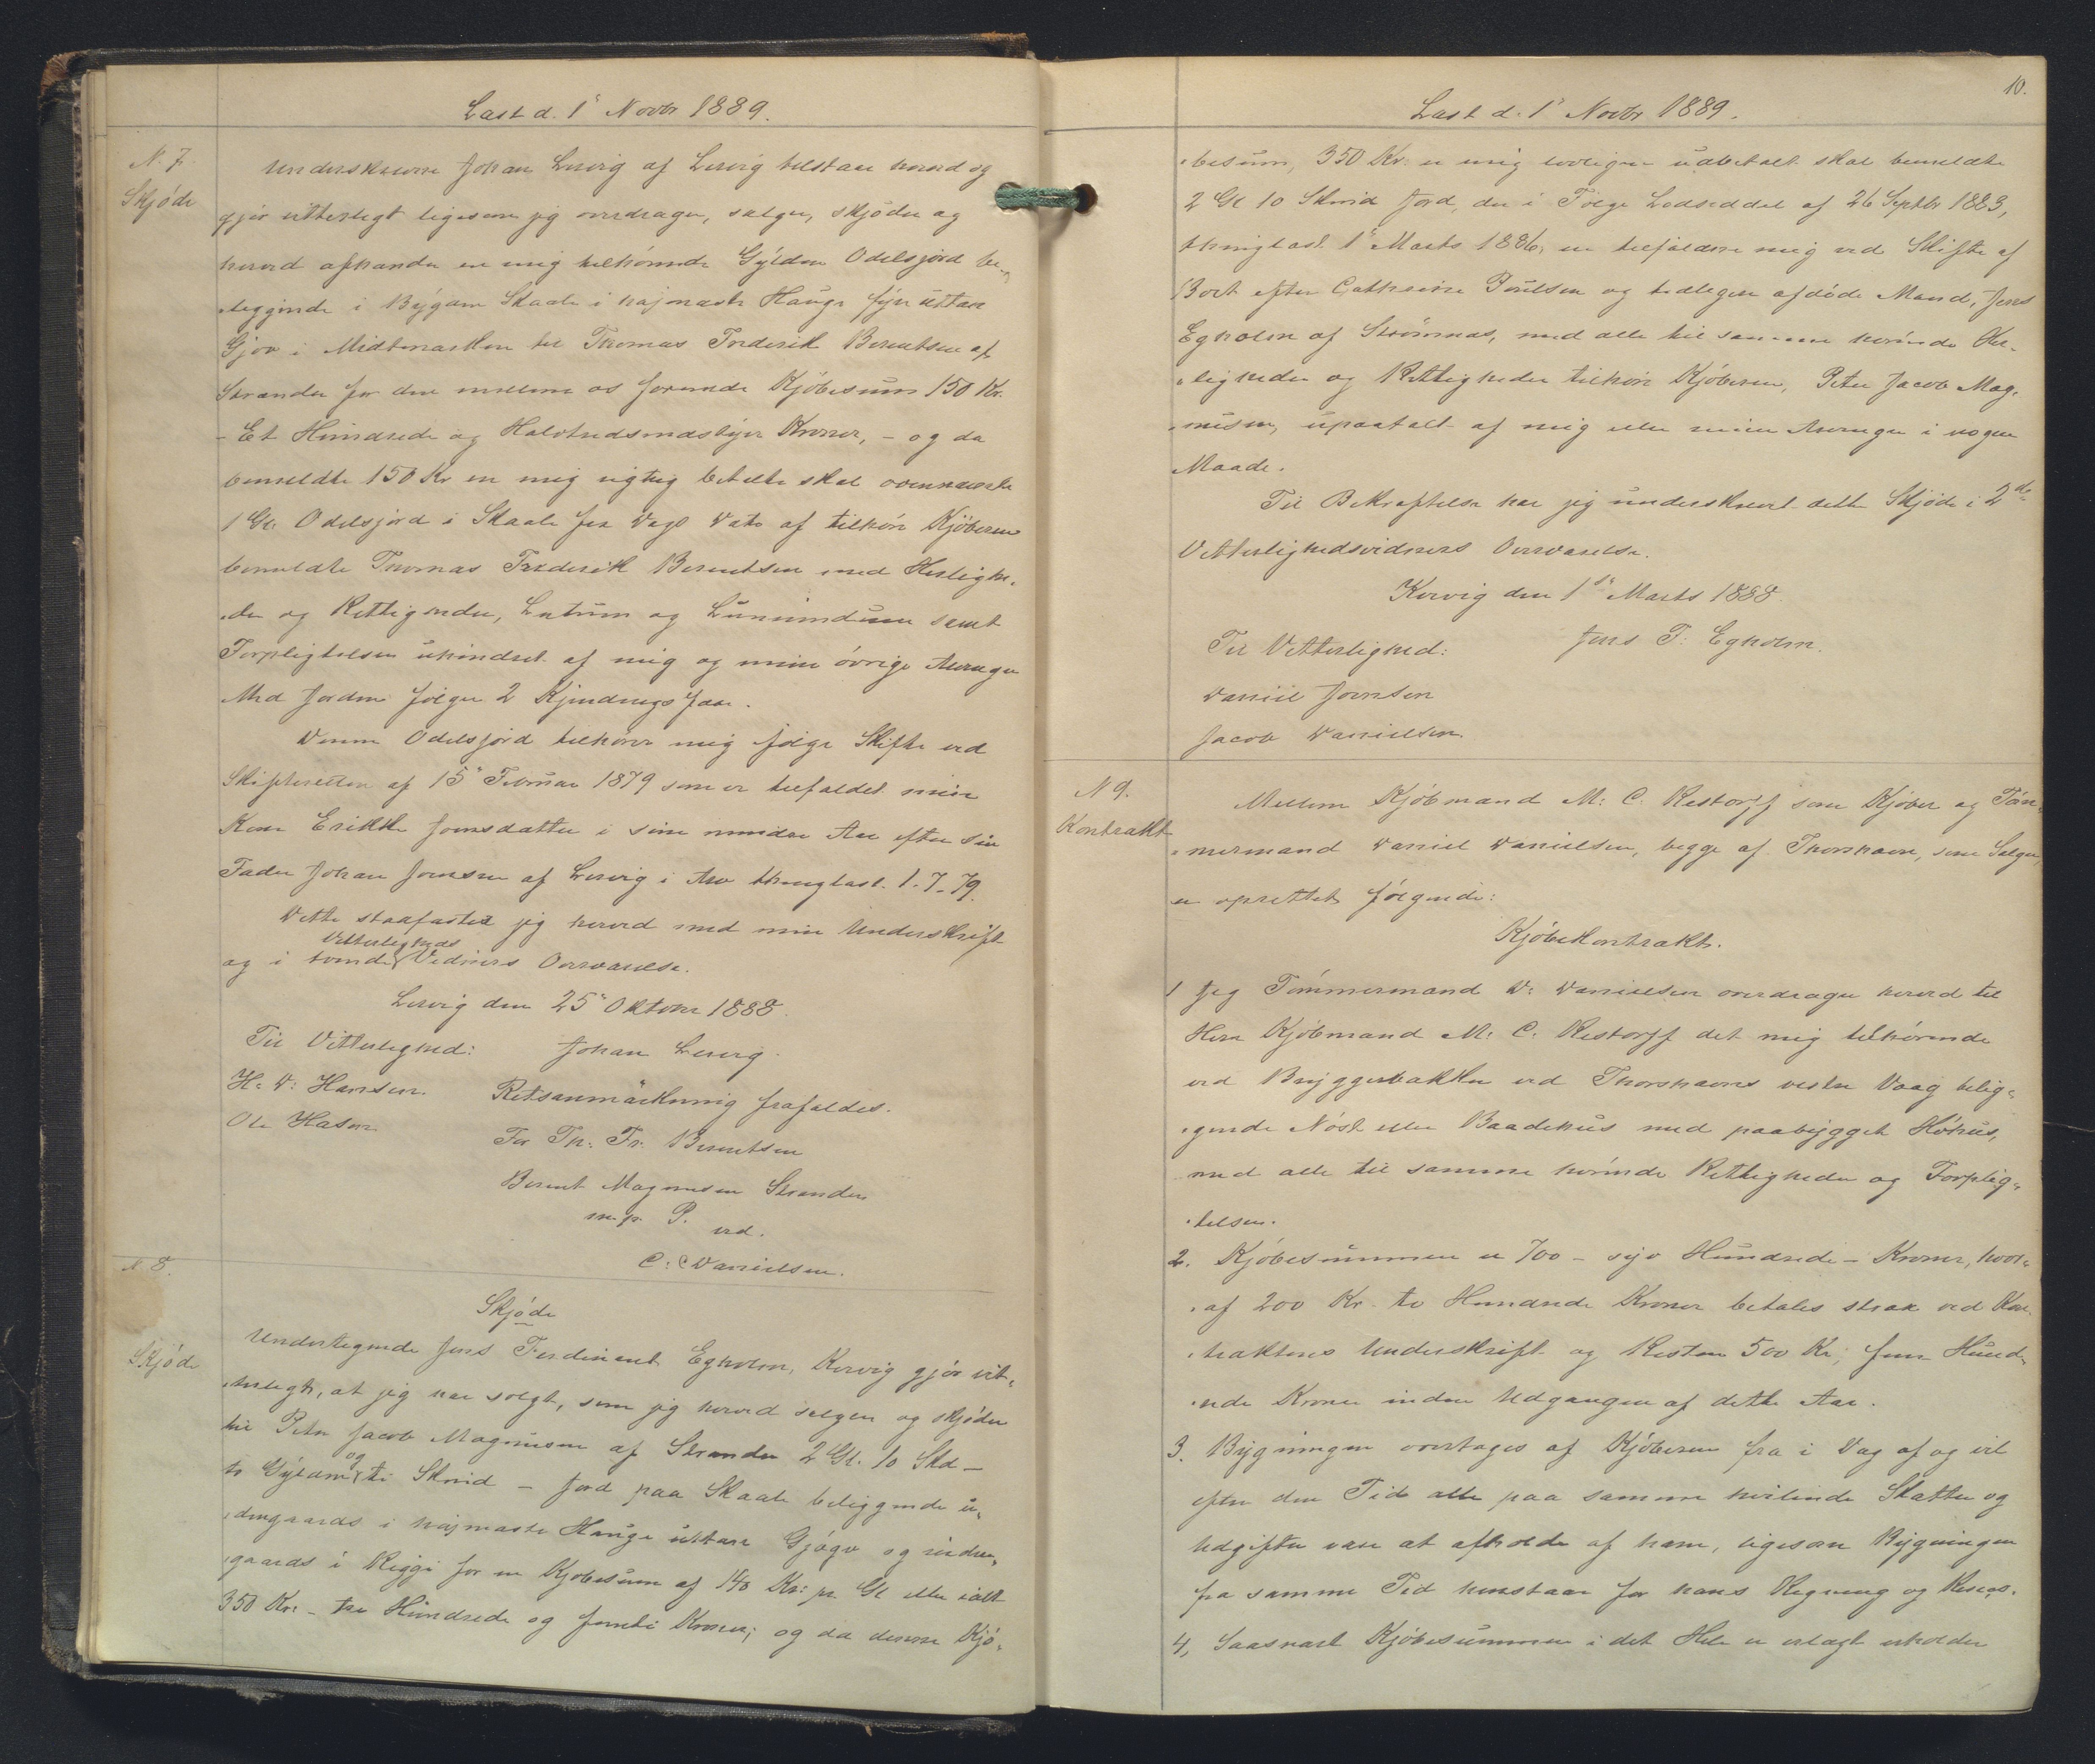 Læst d. 1ˢ Novbr 1889.
N. 7.
Skjöde
Underskrevne Johan Lervig af Lervig tilstaar herved og
gjör vitterligt ligesom jeg overdrager, sælger, skjöder og
herved afhænder en mig tilhörende Gÿlden Odelsjord be-
-liggende i Bÿgden Skaale i højmaste Hauge fyri uttan
Gjov i Midtmarken til Thomas Frederik Berentsen af
Strænder for den mellem os forenede Kjöbesum 150 Kr.
- Et Hundrede og Halvtredsindstÿve Kroner, - og da
bemeldte 150 Kr er mig rigtig betalte skal ovennævnte
1 Gl. Odelsjord i Skaale fra Dags Dato af tilhöre Kjöberen
bemeldte Thomas Frederik Berentsen med Herlighe-
-der og Rettigheder, Lutum og Lunnindum samt
Forpligtelser uhindret af mig og mine övrige Arvinger
Med Jorden fölger 2 Kjendings Faar.
Denne Odelsjord tilhörer mig fölge Skifte ved
Skifteretten af 15ᵈ Februar 1879 som er tilfaldet min
Kone Erikke Joensdatter i sine mindre Aar efter sin
Fader Johan Joensen af Lervig i Arv thinglæst 1.7.79.
Dette stadfæster jeg herved med min Underskrift
Vitterligheds
og i tvende Vidners Overværelse.
Lervig den 25ᵈ Oktober 1888.
Til Vitterlighed: Johan Lervig.
H. D. Hansen. Retsanmärkning frafaldes.
Ole Hasen For Th. Fr. Berentsen
Berent Magnusen Strænder
m. p. P.
ved.
C. Danielsen.
N 8.
Skjöde
Skjöde
Undertegnede Jens Ferdinant Egholm, Kervig gjör vit-
-terligt, at jeg har solgt, som jeg herved sælger og skjöder
til Peter Jacob Magnusen af Strænder 2 Gl. 10 Skd -
og
to Gÿlden ti Skind - Jord paa Skaale beliggende u-
-dengaards i højmaste Hauge uttan Gjógv og inden-
-gaards i Reggi for en Kjøbesum af 140 Kr: pr Gl eller ialt
350 Kr: - tre Hundrede og femti Kroner; og da denne Kjö-
10.
Læst d. 1ˢ Novbr 1889.
-besum, 350 Kr. er mig lovligen udbetalt skal bemeldte
2 Gl 10 Skind Jord, der i Fölge Lodseddel af 26 Septbr 1883,
thinglæst 1ˢ Marts 1886, er tilfaldne mig ved Skifte af
Boet efter Cathrine Poulsen og tidligere afdöde Mand, Jens
Egholm af Strömnæs, med alle til samme hörende Her-
-ligheder og Rettigheder tilhöre Kjöberen, Peter Jacob Mag-
-nusen, upaatalt af mig eller mine Arvinger i nogen
Maade.
Til Bekræftelse har jeg underskrevet dette Skjöde i 2ᵈᵉ
Vitterlighedsvidners Overværelse.
Kervig den 1ˢᵗᵉ Marts 1888.
Til Vitterlighed: Jens F. Egholm.
Daniel Joensen
Jacob Danielsen.
N 9.
Kontrakt
Mellem Kjöbmand M. C. Restorff som Kjöber og Töm-
-mermand Daniel Danielsen, begge af Thorshavn, som Sælger,
er oprettet fölgende:
Kjöbekontrakt.
1 Jeg Tömmermand D. Danielsen overdrager herved til
Herr Kjöbmand M. C. Restorff det mig tilhörende
ved Bryggerbakken ved Thorshavns vestre Vaag belig-
-gende Nöst eller Baadehus med paabÿgget Höhus,
med alle til samme hörende Rettigheder og Forplig-
-telser.
2. Kjöbesummen er 700 - syv Hundrede - Kroner, hvor-
-af 200 Kr. to Hundrede Kroner betales strax ved Kon-
-traktens Underskrift og Resten 500 Kr, fem Hund-
-rede Kroner inden Udgangen af dette Aar.
3. Bygningen overtages af Kjöberen fra i Dag af og vil
efter den Tid alle paa samme hvilende Skatter og
Udgifter være at afholde af ham, ligesom Bygningen
fra samme Tid henstaar for hans Regning og Resico.
4, Saasnart Kjöbesummen i det Hele er erlagt erholder